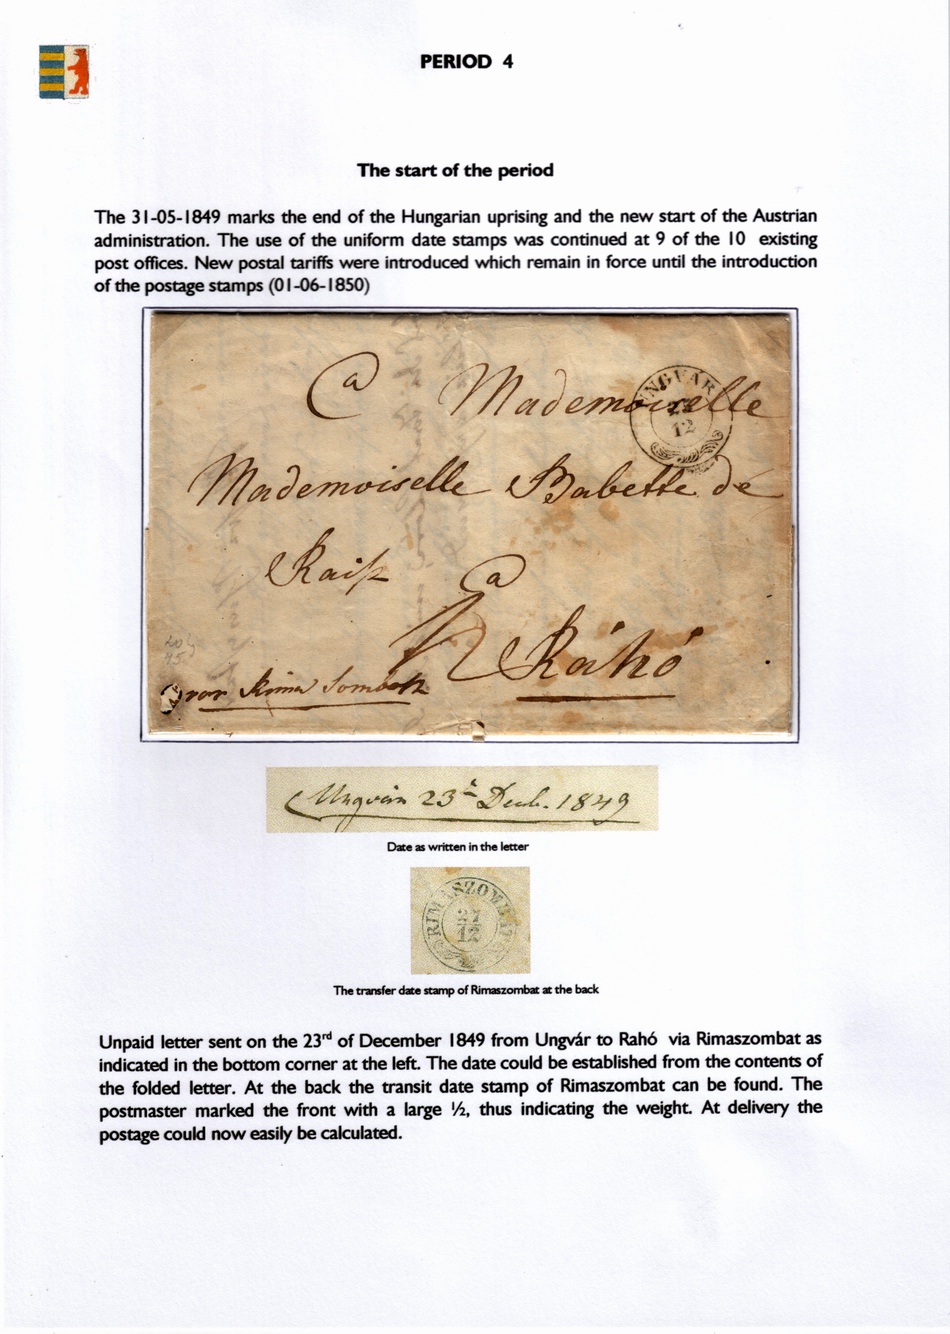 PERIOD 4
The start of the period
The 31-05-1849 marks the end of the Hungarian uprising and the new start of the Austrian
administration. The use of the uniform date stamps was continued at 9 of the 10 existing
post offices. New postal tariffs were introduced which remain in force until the introduction
of the postage stamps (01-06-1850)
a Mademoiselle
UNGVÁR
23
12
Mademoiselle Babette de
a
½ Ráhó
Ungvár 23 Decb. 1849
Date as written in the letter
RIMASZOMBAT
27
12
The transfer date stamp of Rimaszombat at the back
Unpaid letter sent on the 23rd of December 1849 from Ungvár to Rahó via Rimaszombat as
indicated in the bottom corner at the left. The date could be established from the contents of
the folded letter. At the back the transit date stamp of Rimaszombat can be found. The
postmaster marked the front with a large ½, thus indicating the weight. At delivery the
postage could now easily be calculated.